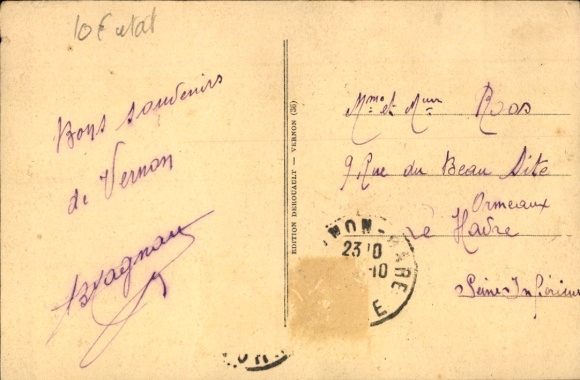 10 € état
Bons souvenirs
de Vernon
EDITION DEROUAULT — VERNON (36)
Mme et Mur Roos
9, Rue du Beau Site
Ormeaux
Le Havre
Seine Inférieure
NON-GARE
23 10
-10
E